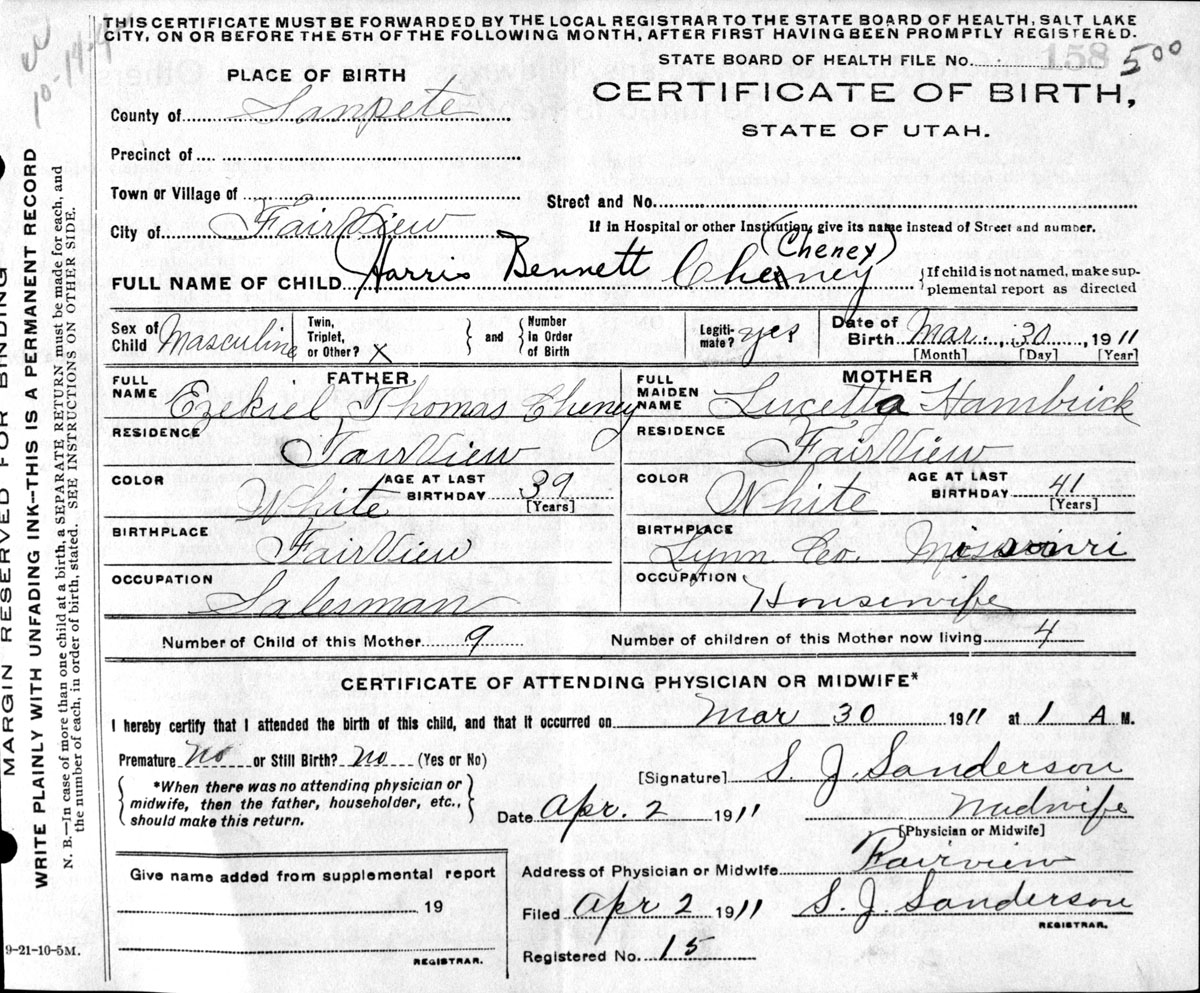 THIS CERTIFICATE MUST BE FORWARDED BY THE LOCAL REGISTRAR TO THE STATE BOARD OF HEALTH, SALT LAKE
CITY, ON OR BEFORE THE 5TH OF THE FOLLOWING MONTH, AFTER FIRST HAVING BEEN PROMPTLY REGISTERED.
STATE BOARD OF HEALTH FILE No. 158 500
PLACE OF BIRTH
CERTIFICATE OF BIRTH,
STATE OF UTAH.
County of Sanpete
Precinct of
Town or Village of
Street and No.
City of FairView
If in Hospital or other Institution, give its name instead of Street and number.
(Cheney)
FULL NAME OF CHILD Harris Bennett Cheney
{If child is not named, make sup-
plemental report as directed
Sex of Child Masculine
Twin, Triplet, or Other? X
} and {
Number in Order of Birth
Legiti-mate? yes
Date of Birth Mar. 30, 1911
[Month] [Day] [Year]
FATHER
FULL NAME Ezekiel Thomas Cheney
MOTHER
FULL MAIDEN NAME Lucetta Hambrick
RESIDENCE FairView
RESIDENCE FairView
COLOR White AGE AT LAST BIRTHDAY 39 [Years]
COLOR White AGE AT LAST BIRTHDAY 41 [Years]
BIRTHPLACE FairView
BIRTHPLACE Lynn Co. Missouri
OCCUPATION Salesman
OCCUPATION Housewife
Number of Child of this Mother 9
Number of children of this Mother now living 4
CERTIFICATE OF ATTENDING PHYSICIAN OR MIDWIFE*
I hereby certify that I attended the birth of this child, and that it occurred on Mar 30 1911 at 1 A M.
Premature No or Still Birth? No (Yes or No)
[Signature] S. J. Sanderson
{*When there was no attending physician or
midwife, then the father, householder, etc.,
should make this return.}
Date Apr. 2 1911
Midwife
[Physician or Midwife]
Address of Physician or Midwife Fairview
Give name added from supplemental report
19
REGISTRAR.
Filed Apr 2 1911 S. J. Sanderson
REGISTRAR.
Registered No. 15
9-21-10-5M.
MARGIN RESERVED FOR BINDING
WRITE PLAINLY WITH UNFADING INK--THIS IS A PERMANENT RECORD
N. B.—In case of more than one child at a birth, a SEPARATE RETURN must be made for each, and
the number of each, in order of birth, stated. SEE INSTRUCTIONS ON OTHER SIDE.